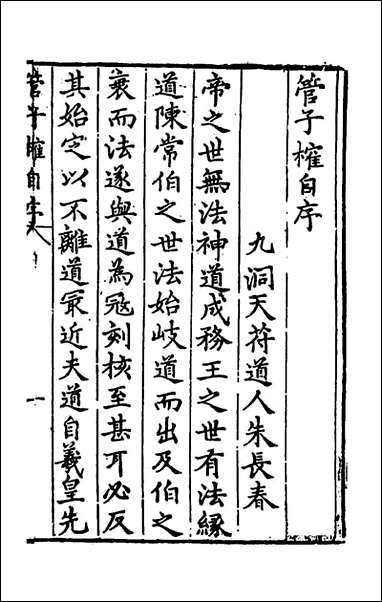 管子榷自序
九洞天符道人朱長春
帝之世無法神道成務王之世有法緣
道陳常伯之世法始歧道而出及伯之
衰而法遂與道為冦刻核至甚耳必反
其始定以不離道㝡近夫道自羲皇先
管子榷自序 一